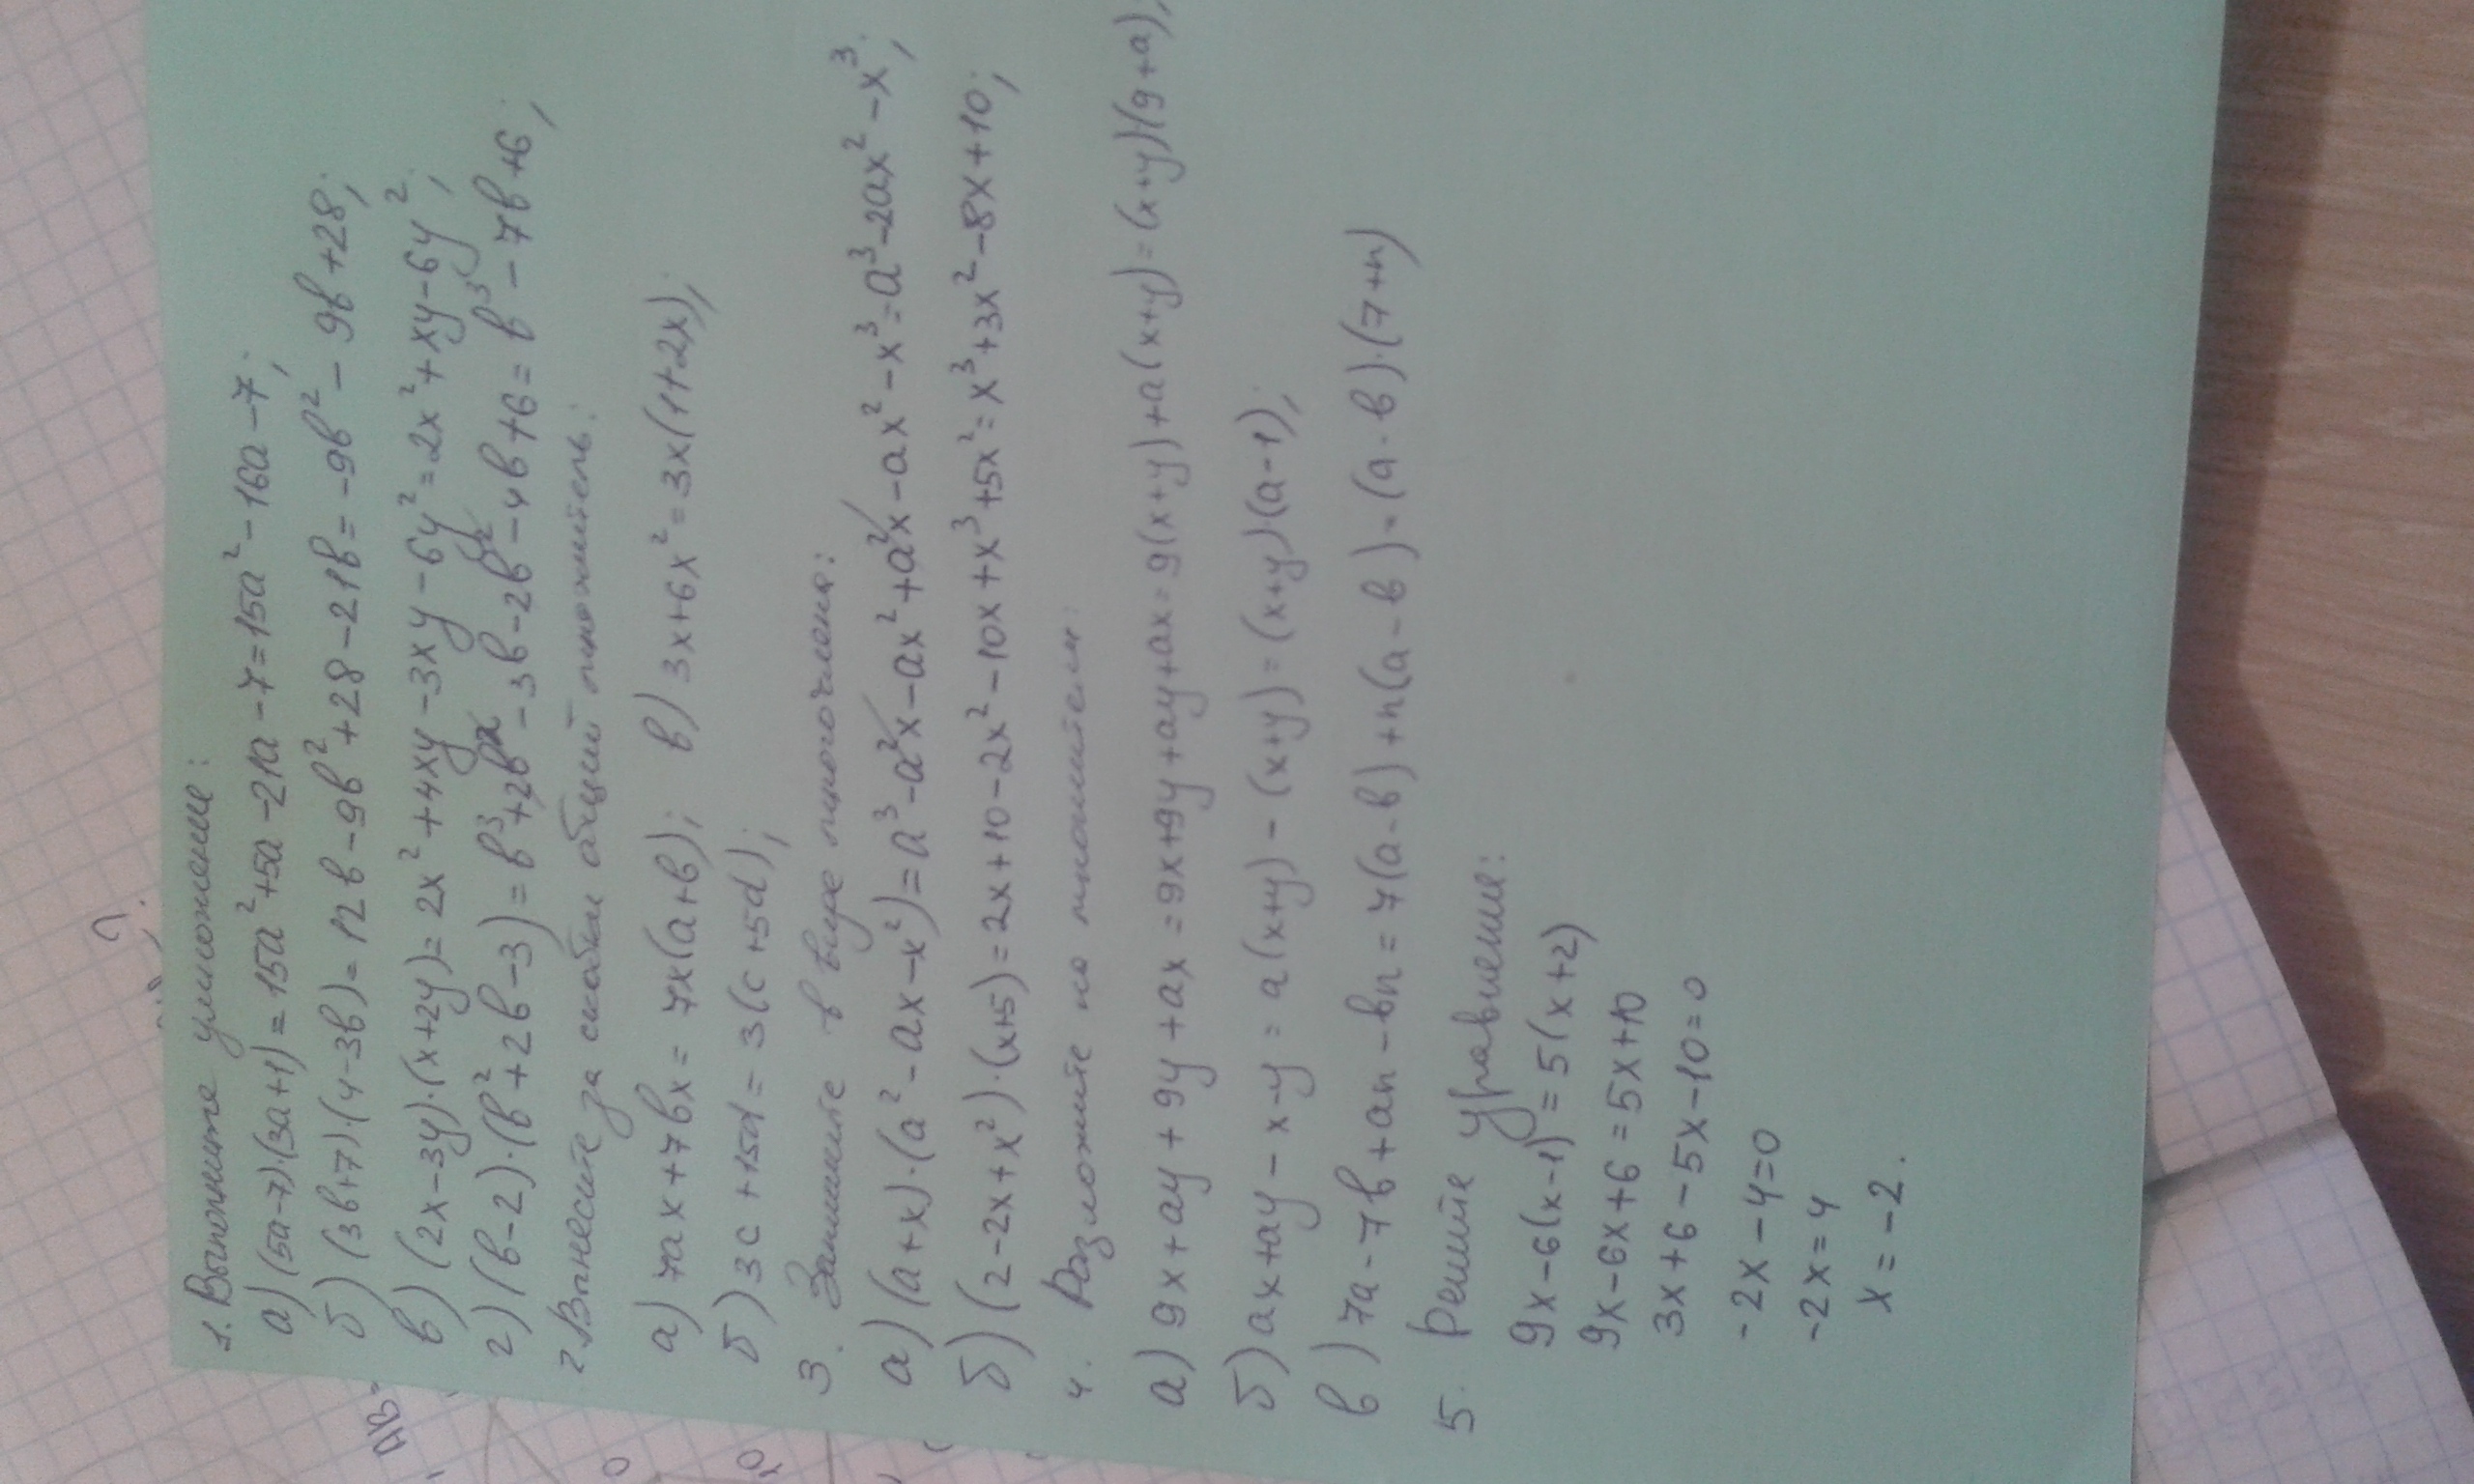 1. Выполните умножение:
а) (5a-7)·(3a+1) = 15a²+5a-21a-7=15a²-16a-7;
б) (3b+7)·(4-3b)=12b-9b²+28-21b=-9b²-9b+28;
в) (2x-3y)·(x+2y)=2x²+4xy-3xy-6y²=2x²+xy-6y²;
г) (b-2)·(b²+2b-3)=b³+2b²-3b-2b²-4b+6=b³-7b+6;
2. Вынесите за скобки общий множитель:
а) 7ax+7bx=7x(a+b); в) 3x+6x²=3x(1+2x);
б) 3c+15d=3(c+5d);
3. Запишите в виде многочлена:
а) (a+x)·(a²-ax-x²)=a³-a²x-ax²+a²x-ax²-x³=a³-2ax²-x³;
б) (2-2x+x²)·(x+5)=2x+10-2x²-10x+x³+5x²=x³+3x²-8x+10;
4. Разложите на множители:
а) 9x+ay+9y+ax=9x+9y+ay+ax=9(x+y)+a(x+y)=(x+y)(9+a);
б) ax+ay-x-y=a(x+y)-(x+y)=(x+y)·(a-1);
в) 7a-7b+an-bn=7(a-b)+n(a-b)=(a-b)·(7+n)
5. Решите уравнение:
9x-6(x-1)=5(x+2)
9x-6x+6=5x+10
3x+6-5x-10=0
-2x-4=0
-2x=4
x=-2.
AB